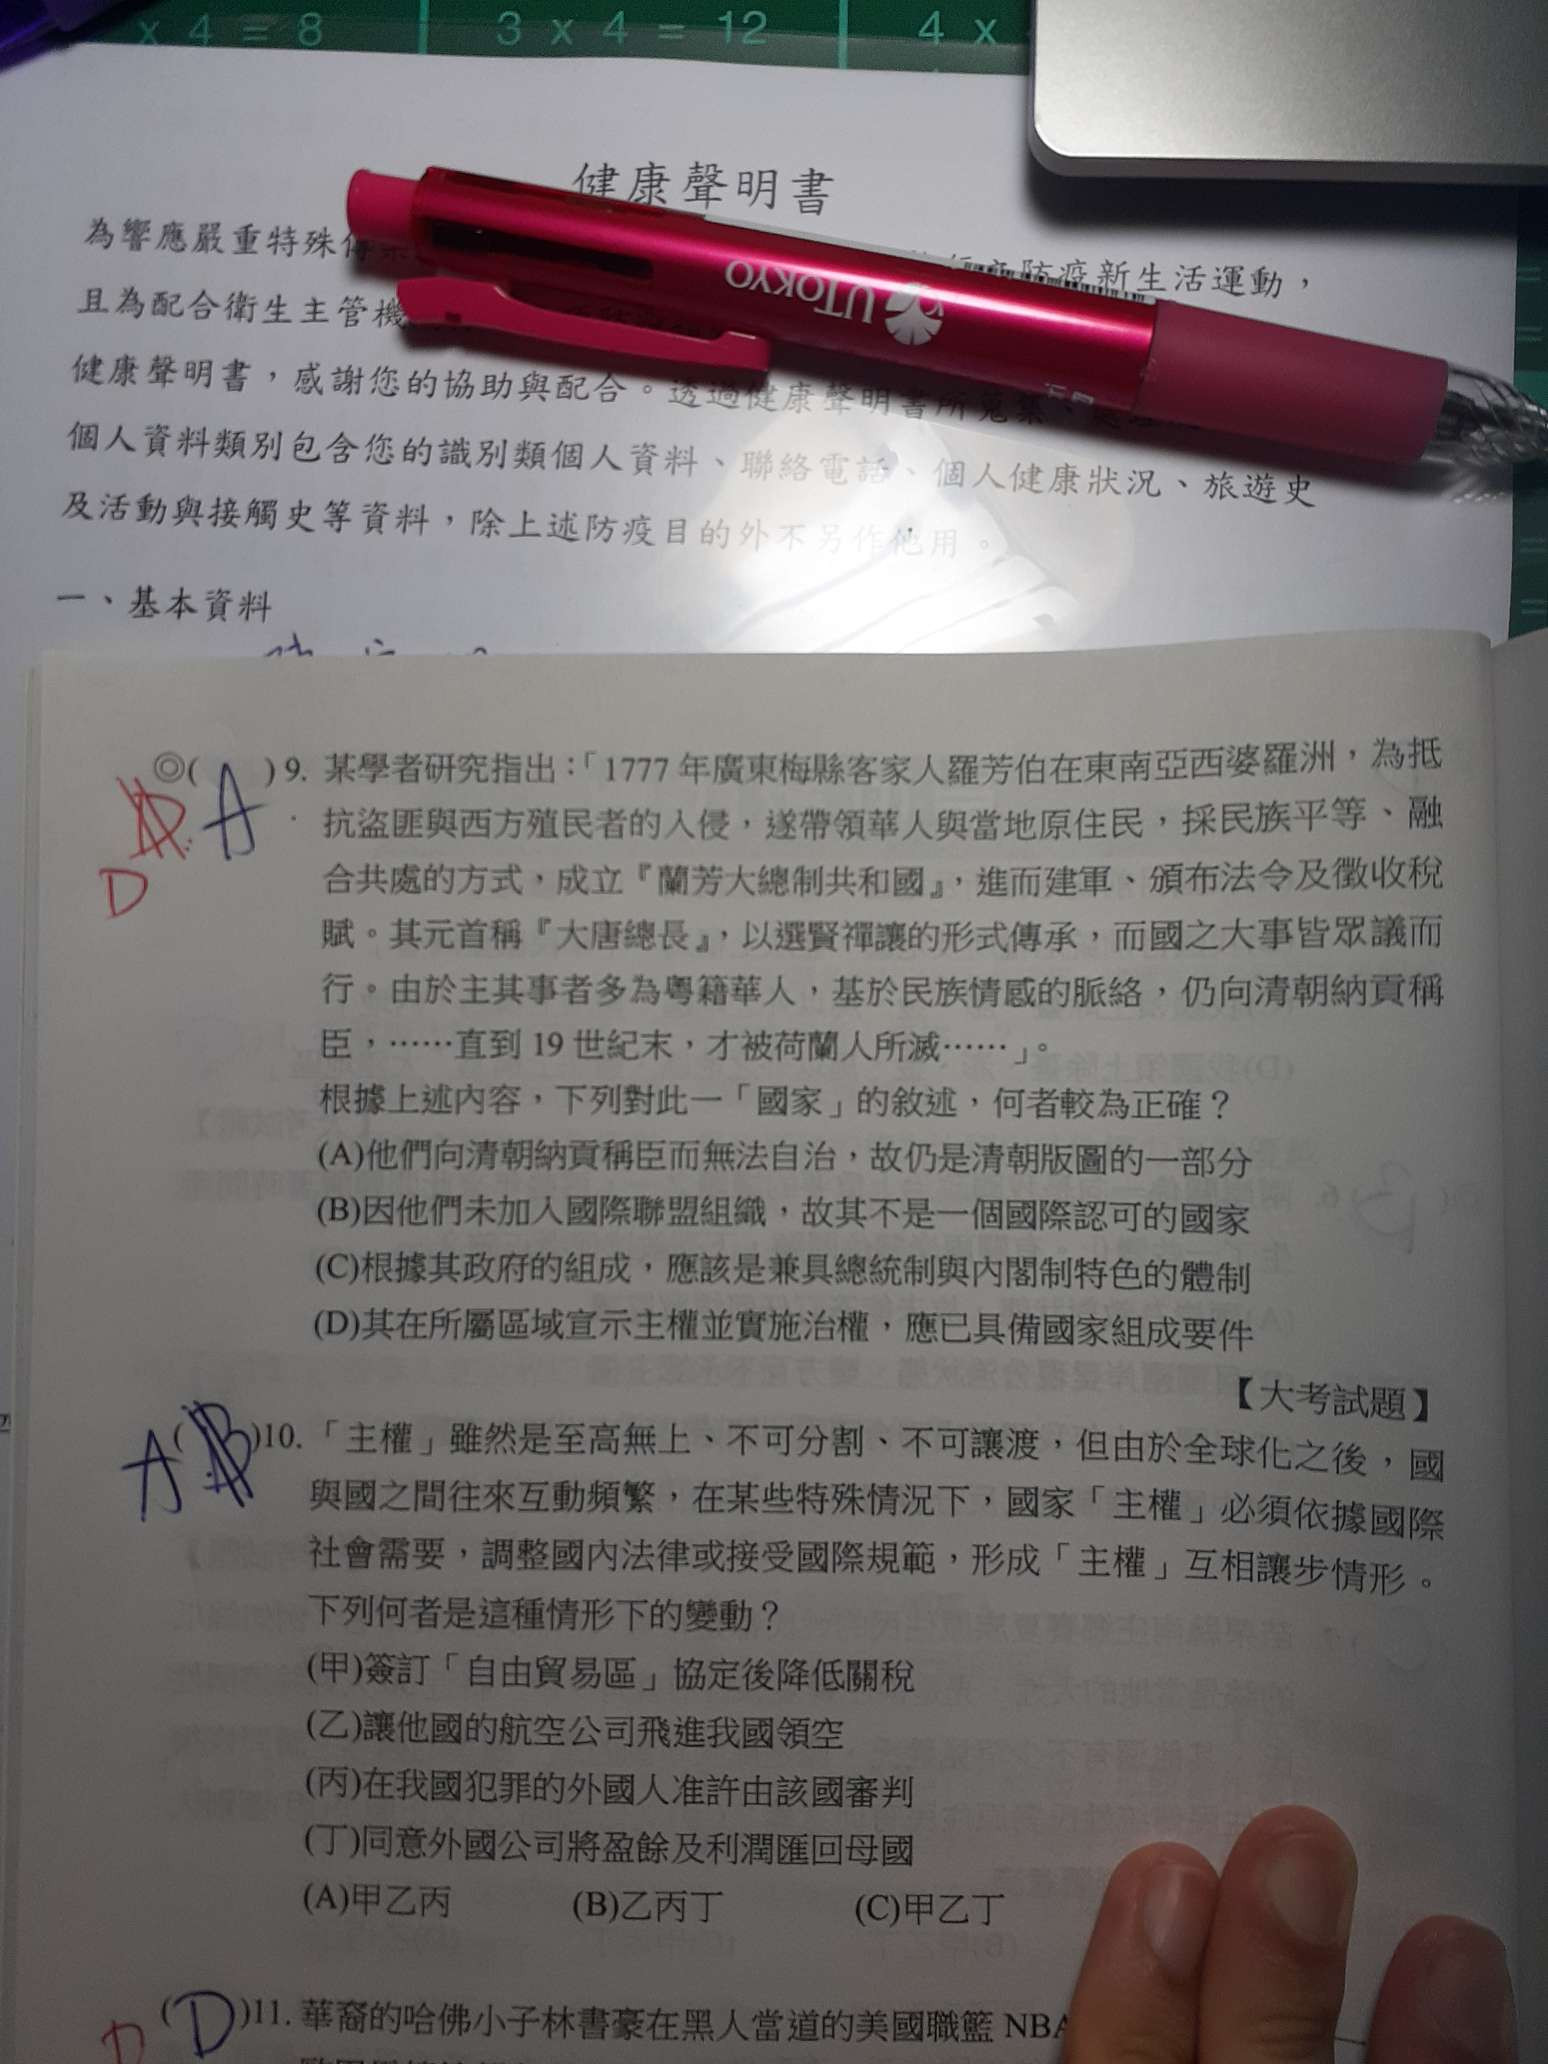 x 4 = 8
3 x 4 = 12
4 x
健康聲明書
為響應嚴重特殊傳 防疫新生活運動，
且為配合衛生主管機
健康聲明書，感謝您的協助與配合。透過健康聲明書所蒐集、
個人資料類別包含您的識別類個人資料、聯絡電話、個人健康狀況、旅遊史
及活動與接觸史等資料，除上述防疫目的外不另作他用。
UTOKYO
UTOKYO
一、基本資料
◎( A )9. 某學者研究指出：「1777 年廣東梅縣客家人羅芳伯在東南亞西婆羅洲，為抵
抗盜匪與西方殖民者的入侵，遂帶領華人與當地原住民，採民族平等、融
D
合共處的方式，成立『蘭芳大總制共和國』，進而建軍、頒布法令及徵收稅
賦。其元首稱『大唐總長』，以選賢禪讓的形式傳承，而國之大事皆眾議而
行。由於主其事者多為粵籍華人，基於民族情感的脈絡，仍向清朝納貢稱
臣，……直到 19 世紀末，才被荷蘭人所滅……」。
根據上述內容，下列對此一「國家」的敘述，何者較為正確？
(A)他們向清朝納貢稱臣而無法自治，故仍是清朝版圖的一部分
(B)因他們未加入國際聯盟組織，故其不是一個國際認可的國家
(C)根據其政府的組成，應該是兼具總統制與內閣制特色的體制
(D)其在所屬區域宣示主權並實施治權，應已具備國家組成要件
【大考試題】
A ( B )10. 「主權」雖然是至高無上、不可分割、不可讓渡，但由於全球化之後，國
與國之間往來互動頻繁，在某些特殊情況下，國家「主權」必須依據國際
社會需要，調整國內法律或接受國際規範，形成「主權」互相讓步情形。
下列何者是這種情形下的變動？
(甲)簽訂「自由貿易區」協定後降低關稅
(乙)讓他國的航空公司飛進我國領空
(丙)在我國犯罪的外國人准許由該國審判
(丁)同意外國公司將盈餘及利潤匯回母國
(A)甲乙丙 (B)乙丙丁 (C)甲乙丁
D ( D )11. 華裔的哈佛小子林書豪在黑人當道的美國職籃 NBA